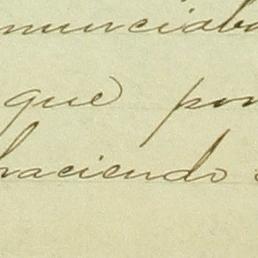 nunciab
que por
haciendo